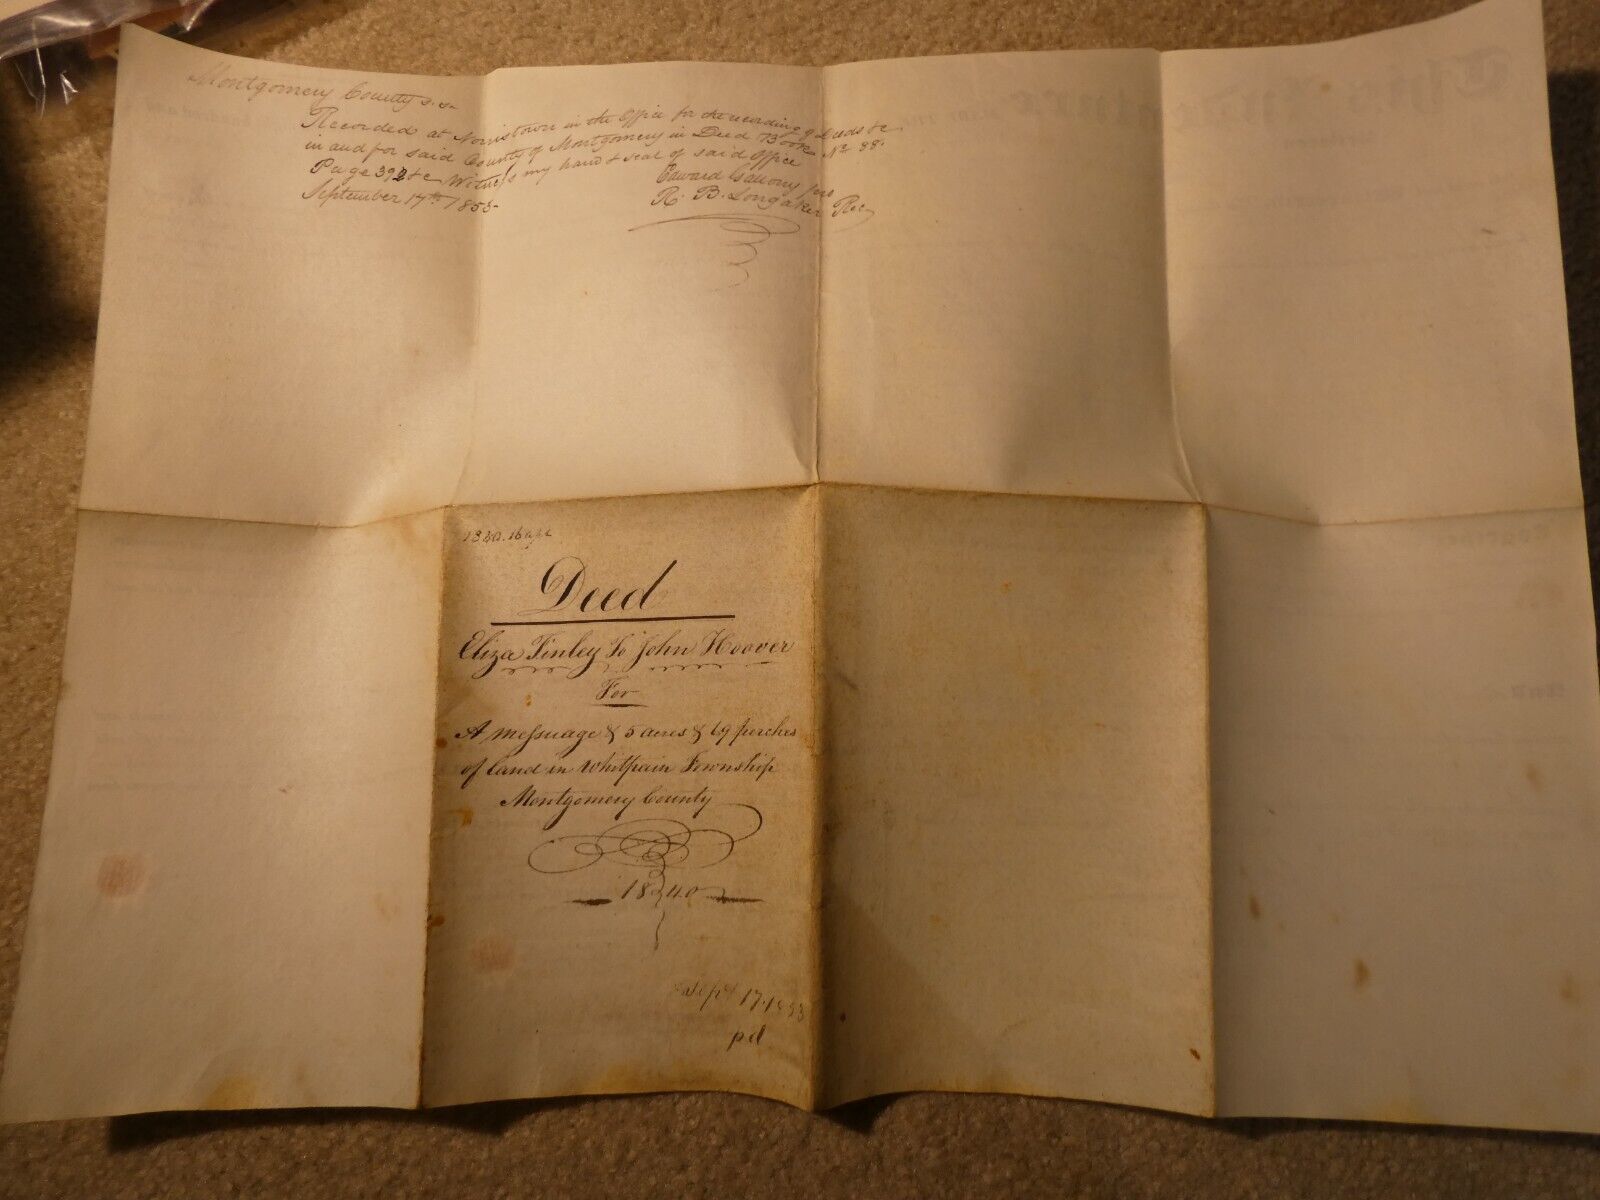 Montgomery County s.s.
Recorded at Norristown in the Office for the recording of Deeds &c
in and for said County of Montgomery in Deed Book No 88.
Page 392 &c Witneſs my hand & seal of said Office
September 17th 1853 Edward pro
R. B. Longaker Rec
Deed
Eliza Finley To John Hoover
For
A meſsuage & 5 acres & 69 perches
of land in Whitpain Township
Montgomery County
1840
Sept 17. 1853
pd
This Indenture